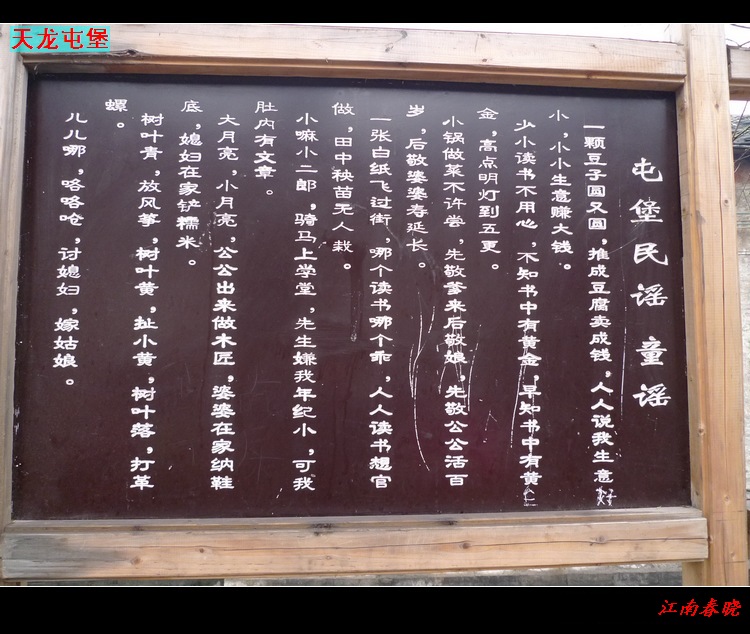 天龙屯堡
屯堡民谣 童谣
一颗豆子圆又圆，推成豆腐卖成钱，人人说我生意好
小，小小生意赚大钱。
少小读书不用心，不知书中有黄金，早知书中有黄
金，高点明灯到五更。
小锅做菜不许尝，先敬爹来后敬娘，先敬公公活百
岁，后敬婆婆寿延长
一张白纸飞过街，哪个读书哪个乖，人人读书想官
做，田中秧苗无人栽。
小嘛小二郎，骑马上学堂，先生嫌我年纪小，可我
肚内有文章。
大月亮，小月亮，公公出来做木匠，婆婆在家纳鞋
底，媳妇在家铲糯米。
树叶青，放风筝，树叶黄，扯小黄，树叶落，打草
螺。
儿儿哪，咯咯呛，讨媳妇，嫁姑娘。
江南春晓